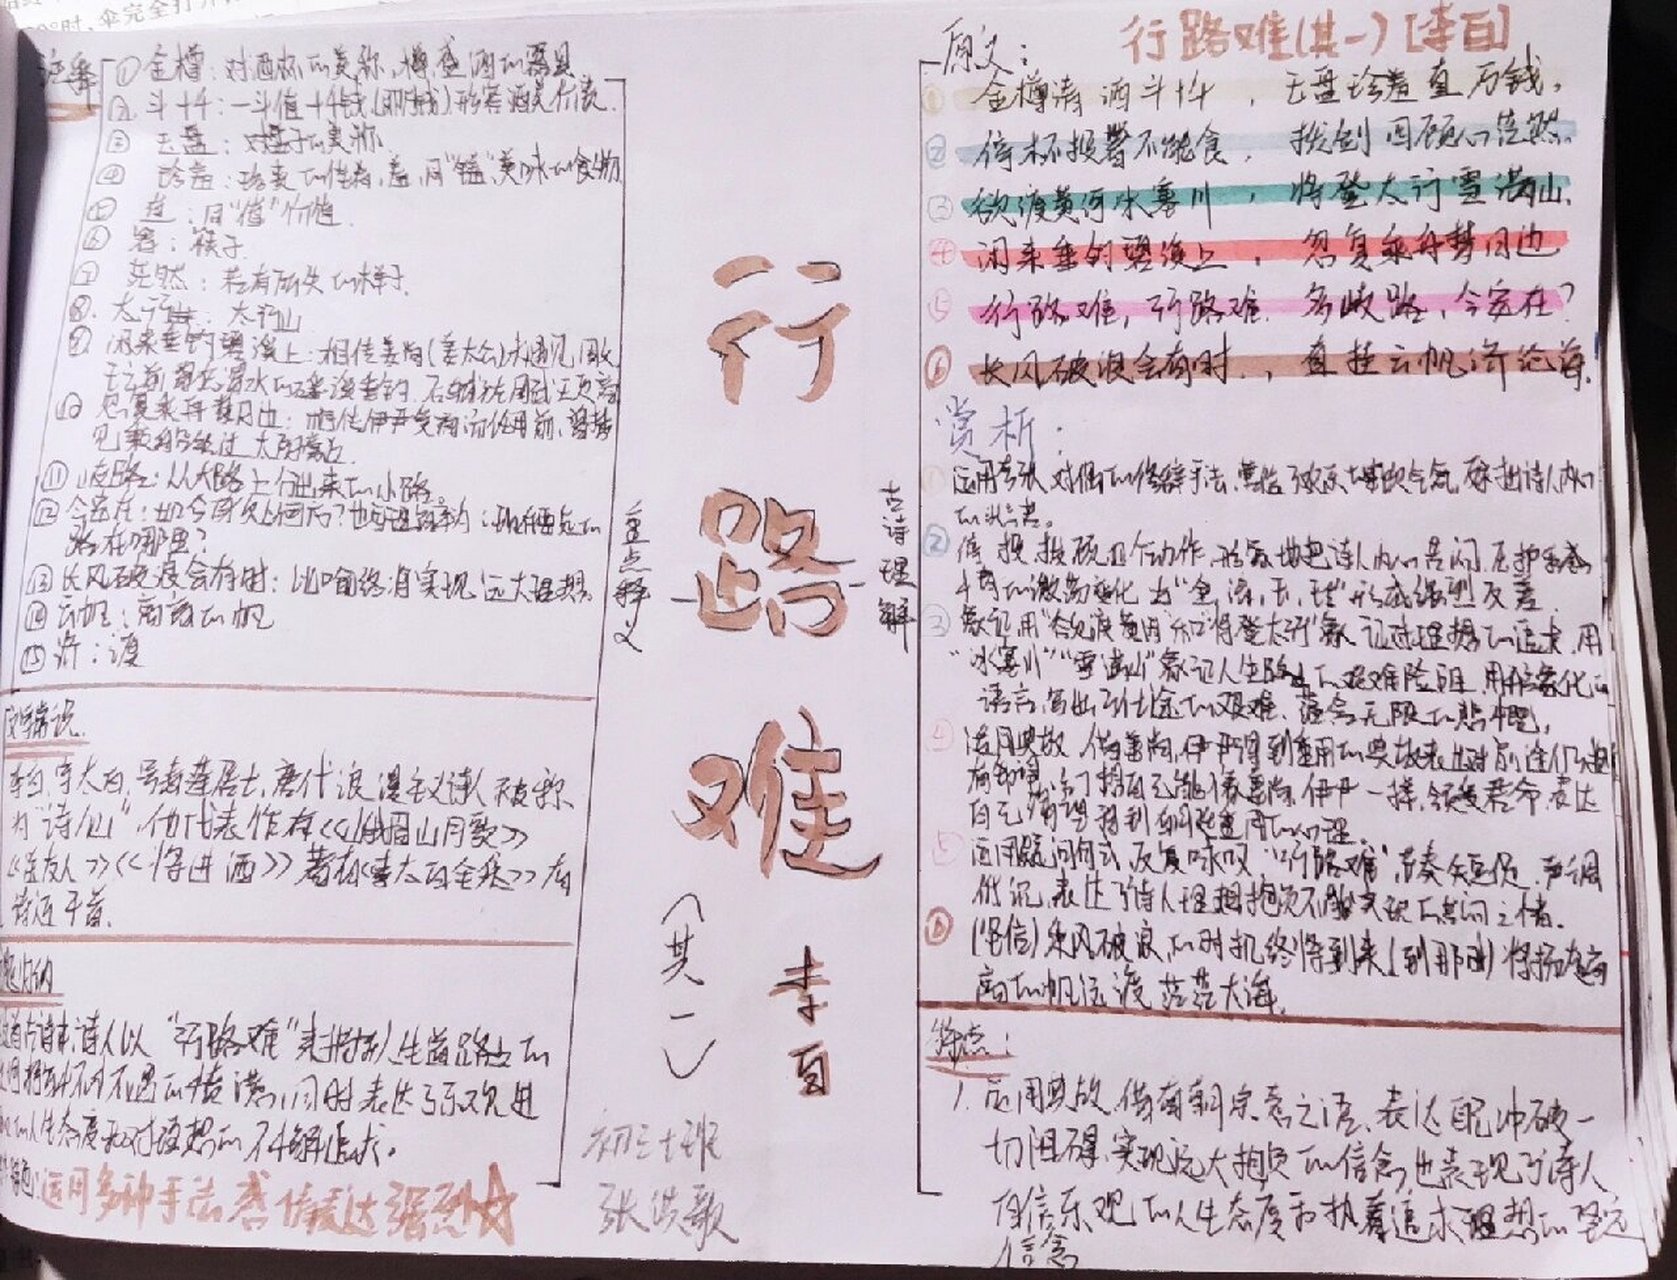 注释
① 金樽：对酒杯的美称，樽，盛酒的器具
② 斗十千：一斗值十千钱（即万钱）形容酒美价贵.
③ 玉盘：对盘子的美称.
④ 珍羞：珍贵的佳肴，羞，同"馐"，美味的食物.
⑤ 直：同"值"价值.
⑥ 箸：筷子.
⑦ 茫然：若有所失的样子.
⑧. 太行：太行山
⑨. 闲来垂钓碧溪上：相传姜尚（姜太公）未遇见周文
王之前，曾在
⑩ 忽复乘舟梦日边：相传伊尹受商汤任用前，曾梦
见乘船经过太阳旁边.
⑪ 歧路：从大路上分出来的小路。
⑫ 今安在：如今身处何方？也可理解为：现在要走的
路在哪里？
⑬ 长风破浪会有时：比喻终将实现远大理想.
⑭ 云帆：高高的帆
⑮ 济：渡
文学常识.
李白，字太白，号青莲居士，唐代浪漫主义诗人被称
为"诗仙"，他代表作有《《峨眉山月歌》》
《《送友人》》《《将进酒》》著有《《李太白全集》》存
诗近千首.
归纳
诗人以"行路难"来描扮人生道路上的
怀才不遇的情满，同时表达了乐观进
的人生态度和对理想的不懈追求。
运用多种手法 感情表达强烈
重点释义
行路难
（其一）
李白
初三七班
张洪歌
古诗理解
原文：
行路难（其一）[李白]
① 金樽清酒斗十千，玉盘珍羞直万钱，
② 停杯投箸不能食，拔剑四顾心茫然.
③ 欲渡黄河冰塞川，将登太行雪满山.
④ 闲来垂钓碧溪上，忽复乘舟梦日边.
⑤ 行路难，行路难. 多歧路，今安在？
⑥ 长风破浪会有时，直挂云帆济沧海.
赏析：
① 运用夸张，对偶的修辞手法，诗人内心
的状态。
② 停，投，拔，顾四个动作，形象地把诗人内心
的激荡变化 与"金，清，玉，珍"形成强烈反差.
③ 象征，用"欲渡黄河"和"将登太行"象征对理想的追求，用
"冰塞川""雪满山"象征人生路上的艰难险阻，用形象化的
语言，写出了仕途的艰难，蕴含无限的悲慨，
④ 活用典故，借姜尚，伊尹得到重用的典故表达对前途仍
像姜尚，伊尹一样，领受君命，表达
自己有望得到朝廷重用的心理.
⑤ 运用疑问句式，反复咏叹"行路难"节奏短促，声调
低沉，表达了诗人理想抱负不能实现的苦闷之情.
⑥ （坚信）乘风破浪的时机终将到来（到那时）将扬起高
高的帆远渡茫茫大海.
特点：
1. 运用典故，表达能冲破一
切阻碍，实现远大抱负的信念，也表现了诗人
自信乐观的人生态度和执着追求理想的坚定
信念